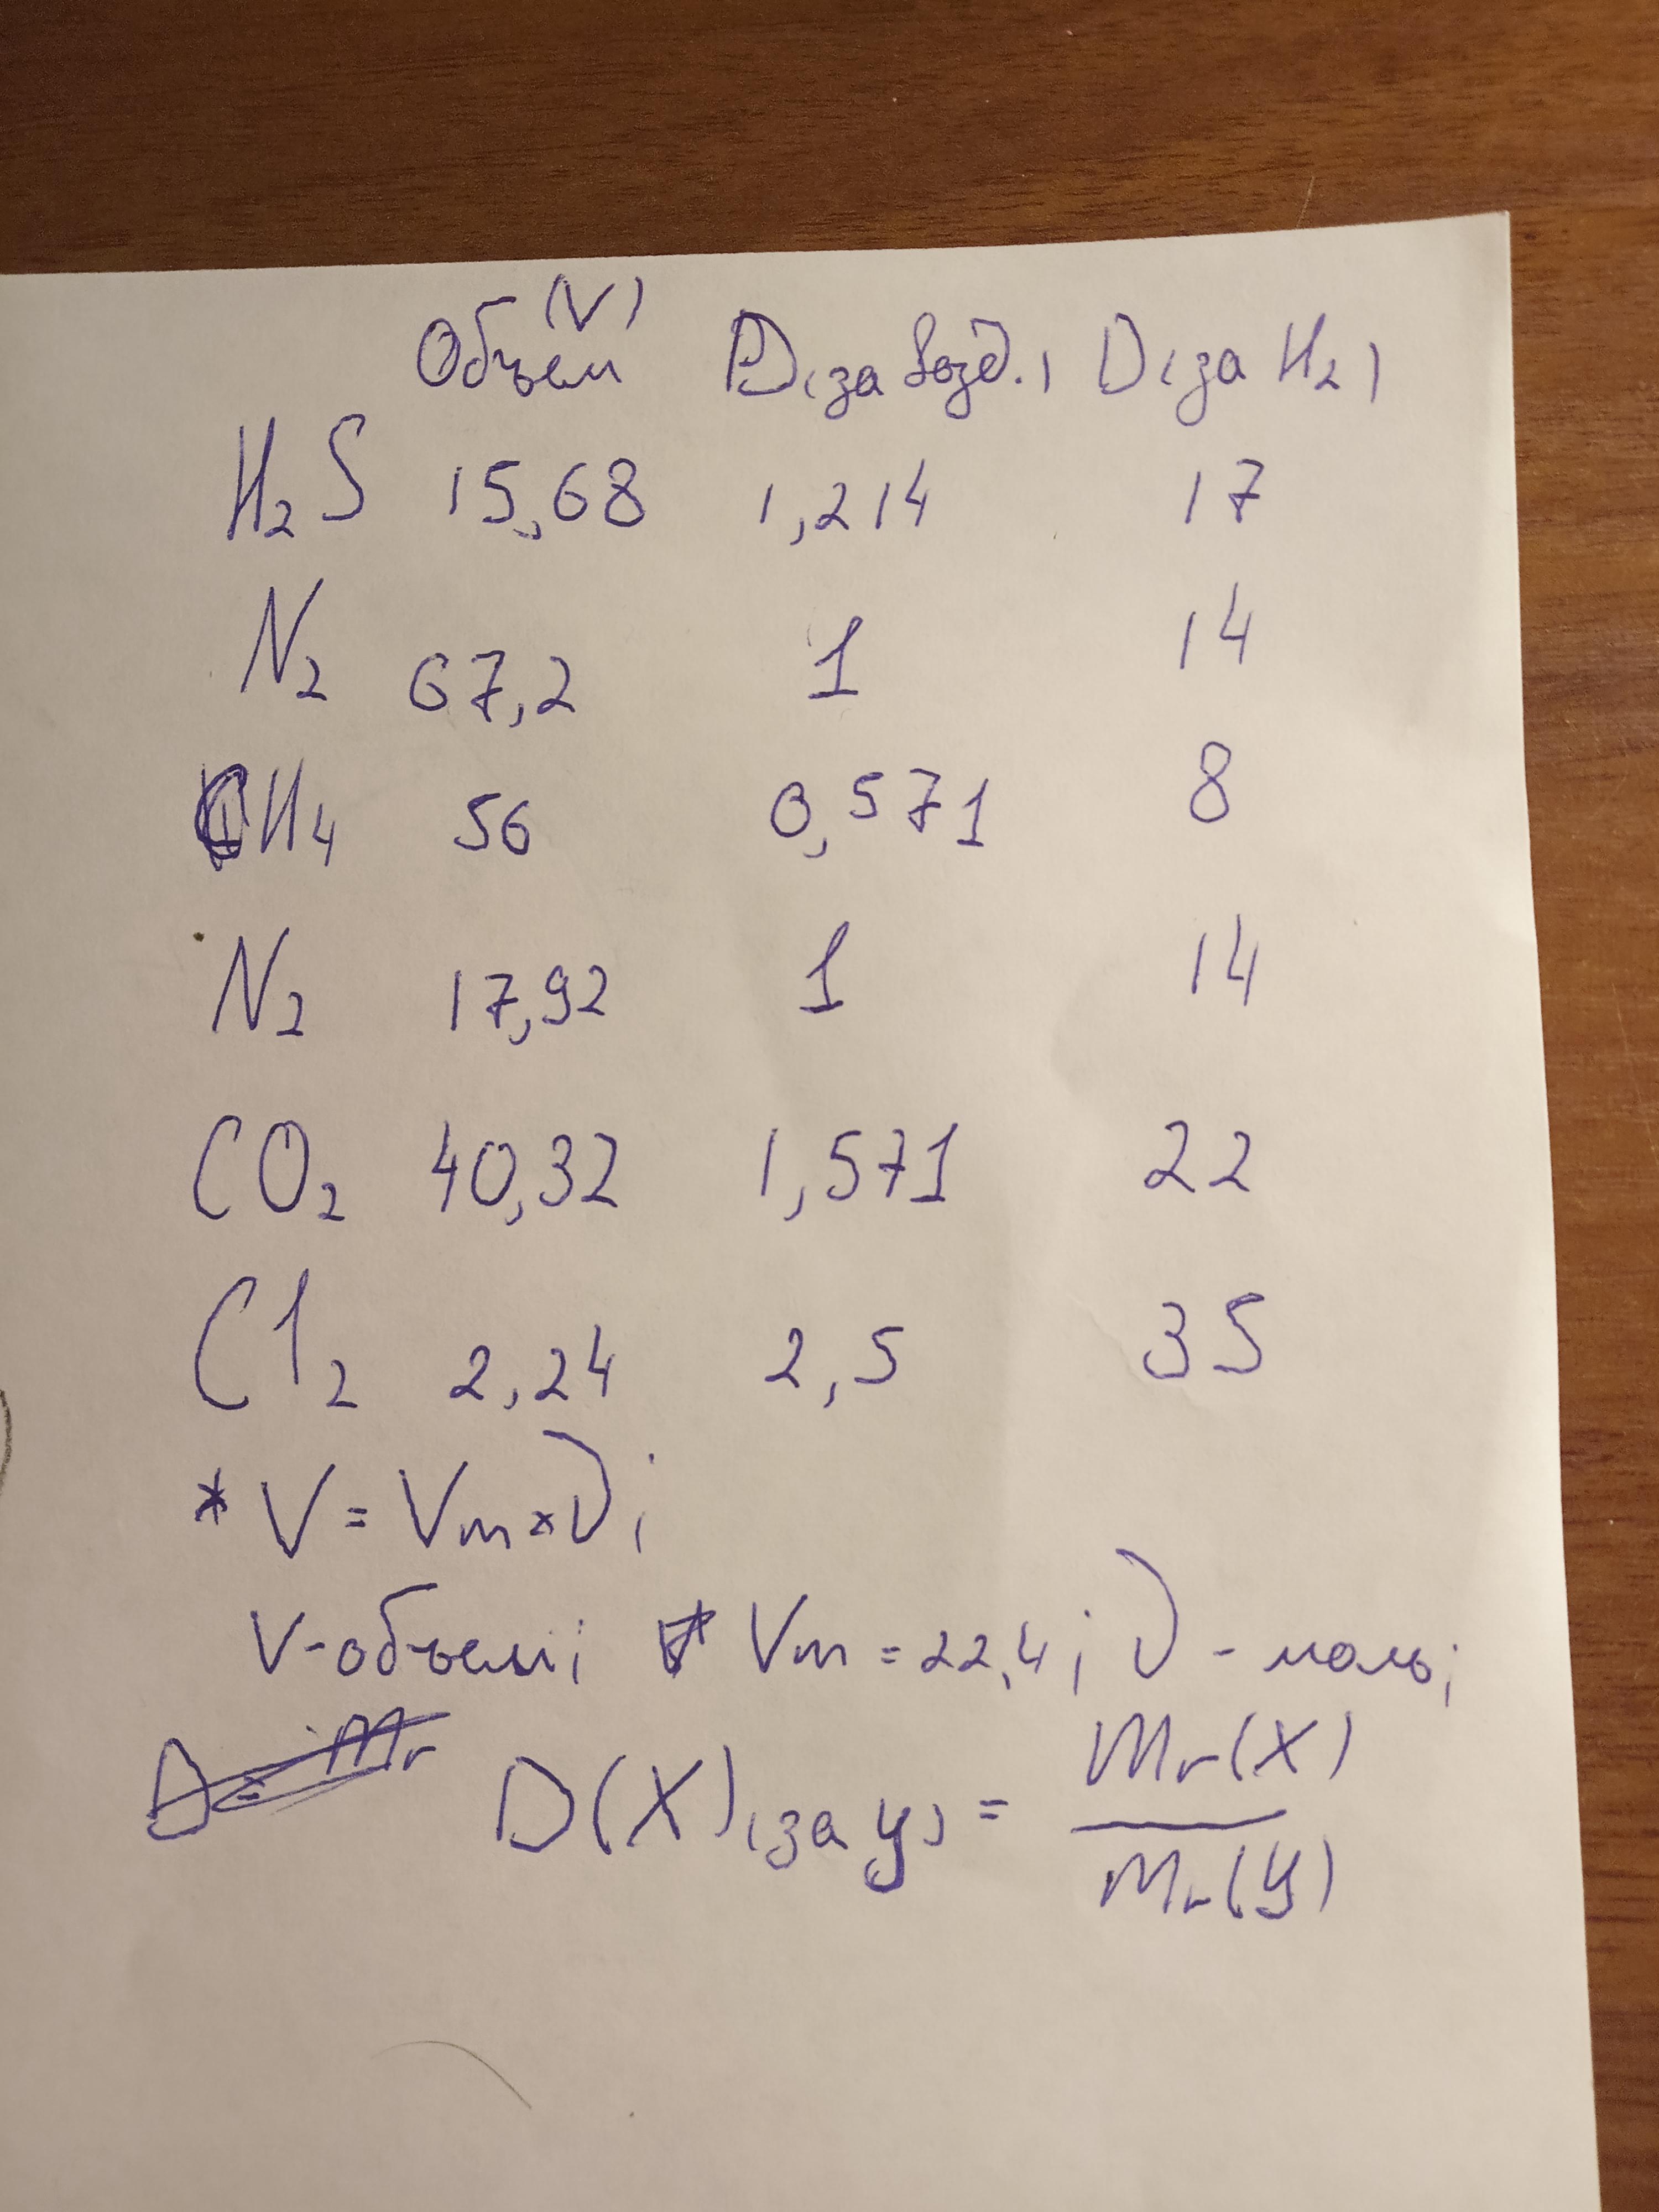 Объем (V) D(за возд.) D(за H₂)
H₂S 15,68 1,214 17
N₂ 67,2 1 14
CH₄ 56 0,571 8
N₂ 17,92 1 14
CO₂ 40,32 1,571 22
Cl₂ 2,24 2,5 35
* V = Vm × ν;
V - объем; Vm = 22,4; ν - моль;
D(X)(за y) = Mr(X) / Mr(y)